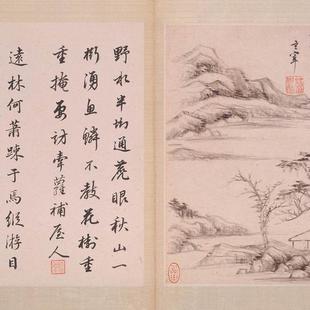 玄宰
野水半坳通眼秋山一
湧魚鱗不教花樹重
重掩要訪牽蘿補屋人
遠林何蕭疎于馬縱游目